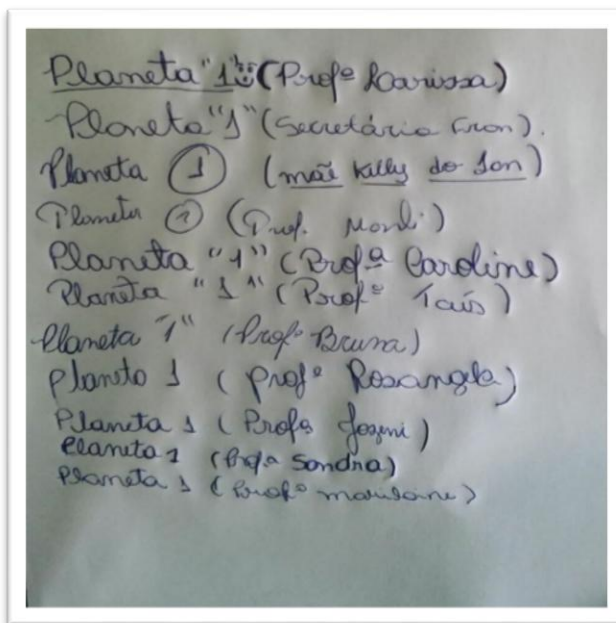 Planeta "1" (Profª Larissa)
Planeta "1" (Secretária Fran).
Planeta 1 (mãe Kelly do Ian)
Planeta 1 (Prof. Marli)
Planeta "1" (Profª Caroline)
Planeta "1" (Profª Taís)
Planeta "1" (Profª Bruna)
Planeta 1 (Profª Rosangela)
Planeta 1 (Profª)
Planeta 1 (Profª Sandra)
Planeta 1 (Profª)